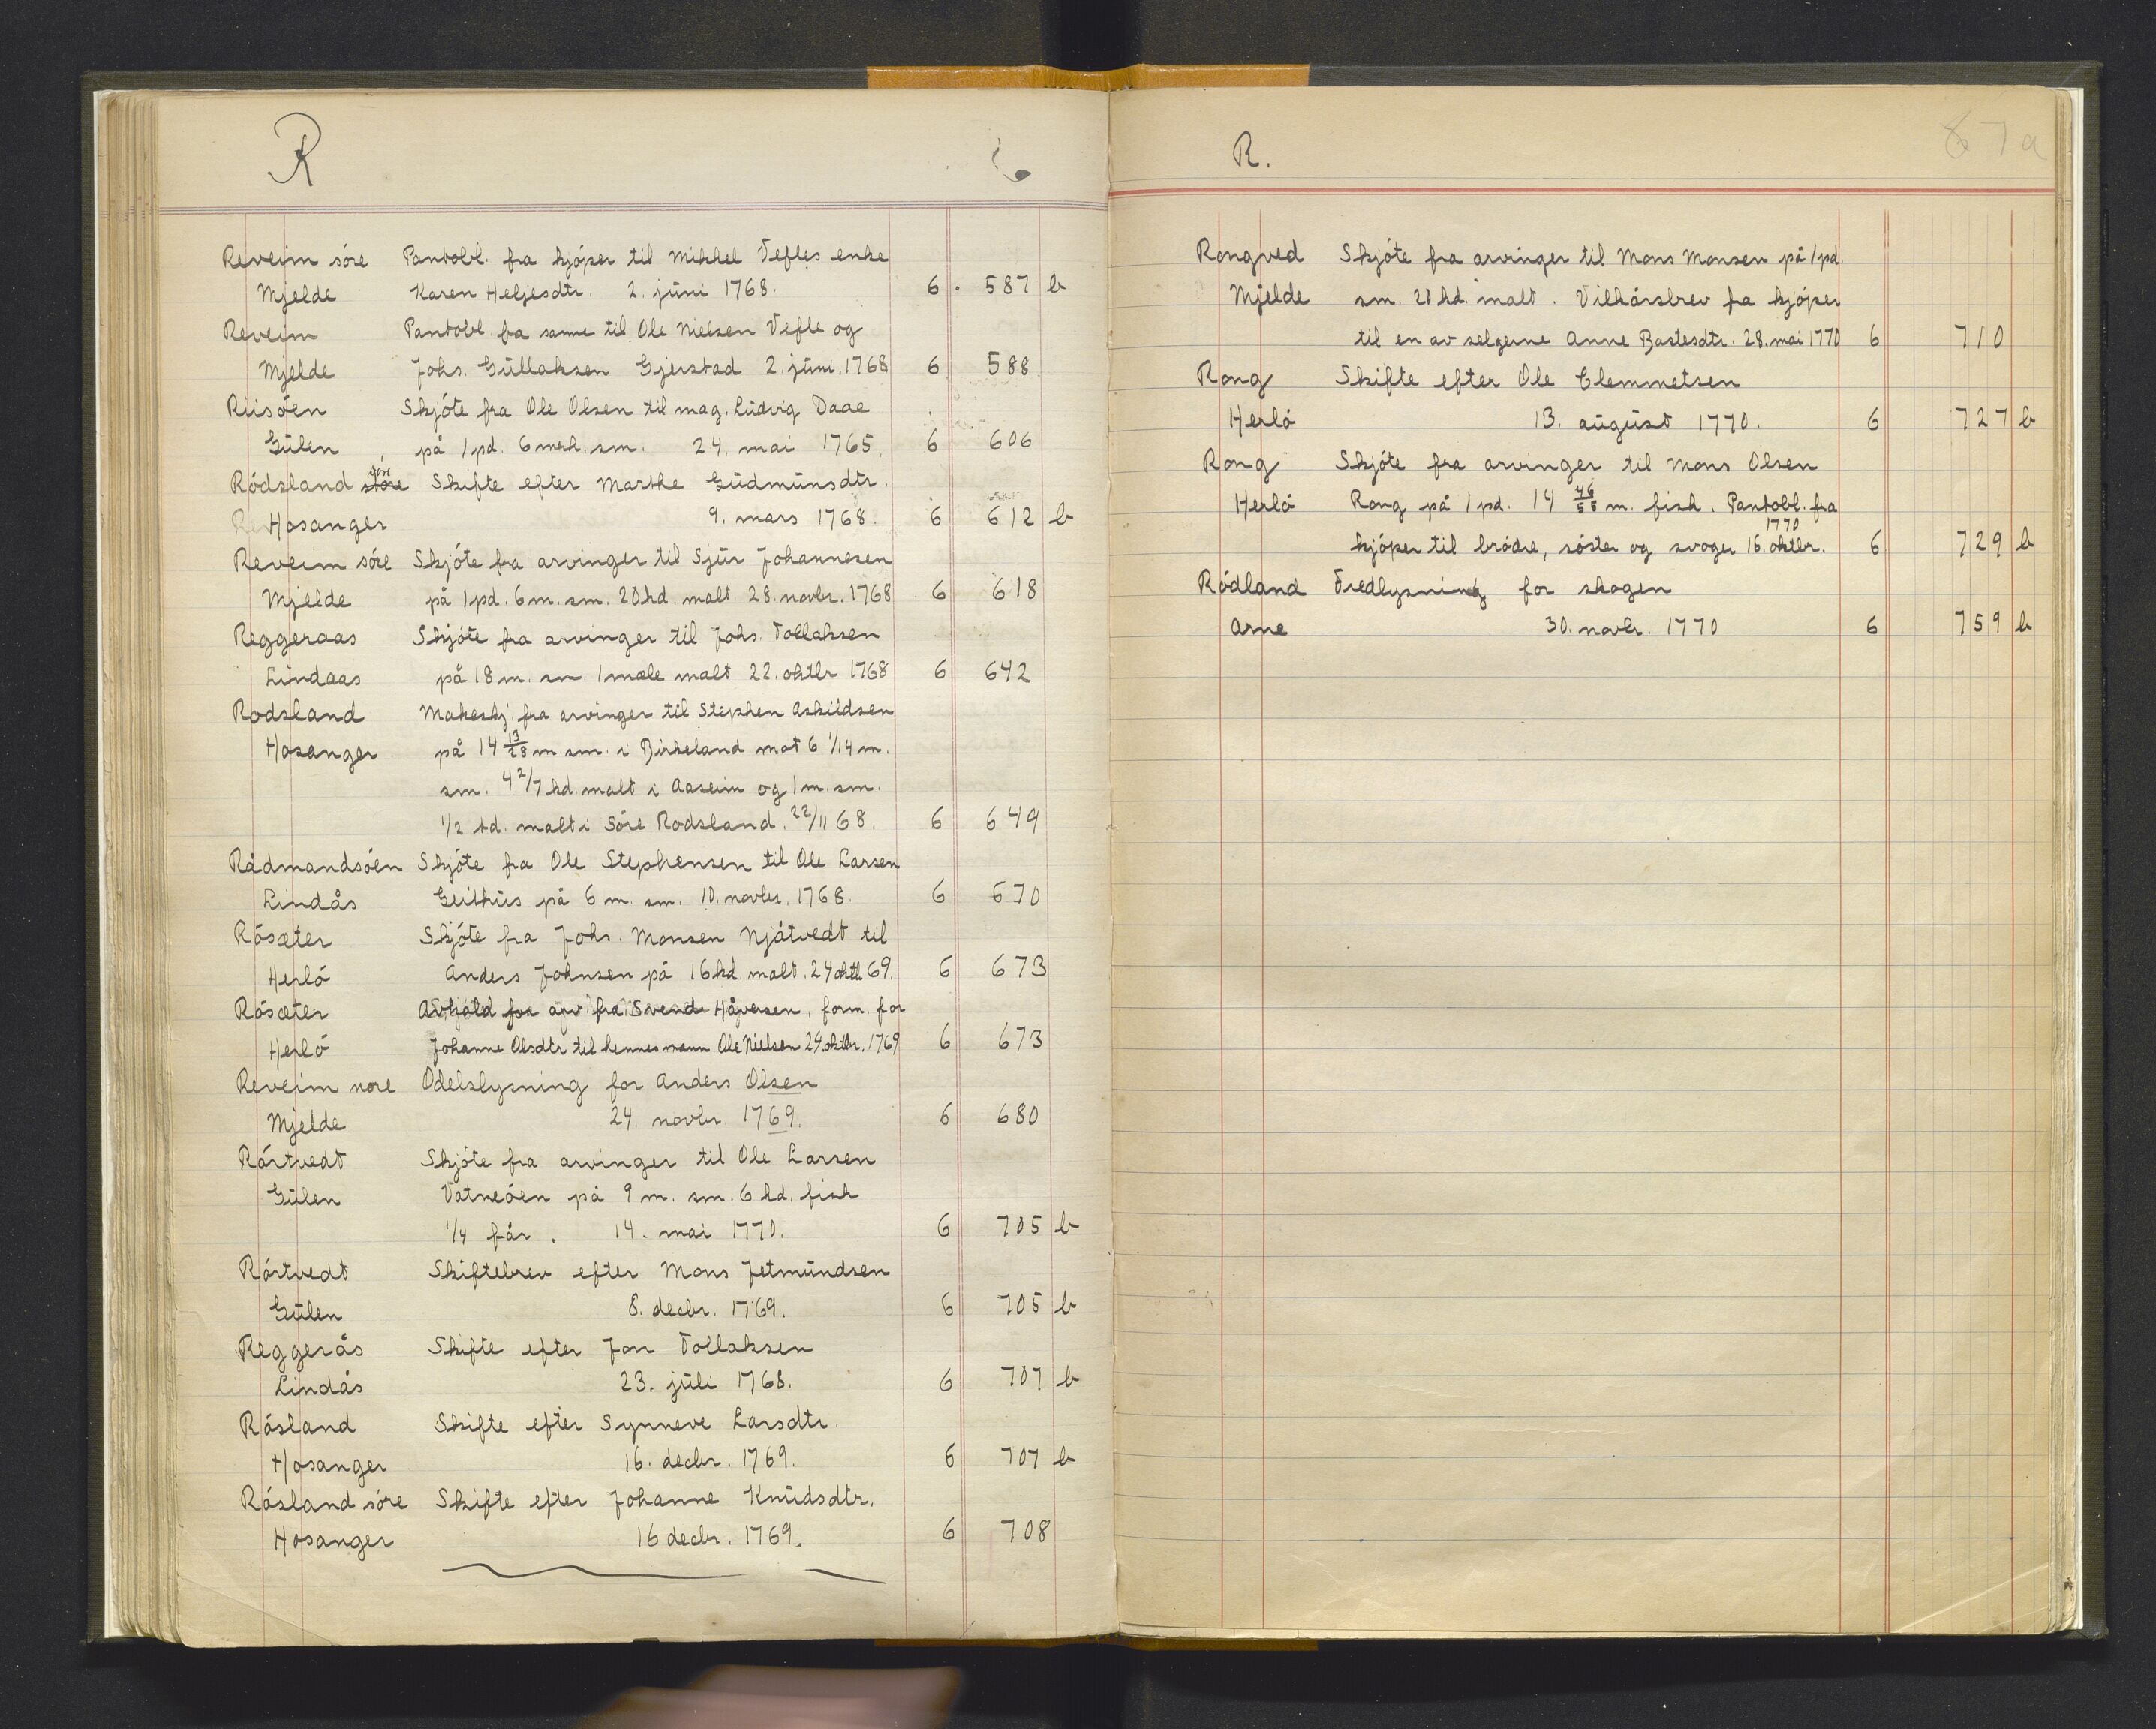 R
6
Reveim söre Pantobl. fra kjöper til Mikkel Vefles enke
Mjelde Karen Heljesdtr. 2. juni 1768. 6. 587 b
Reveim Pantobl. fra samme til Ole Nielsen Vefle og
Mjelde Johs. Gullaksen Gjerstad 2. juni. 1768 6 588
Riisöen Skjöte fra Ole Olsen til mag. Ludvig Daae
Gulen på 1 pd. 6 merk. sm. 24. mai 1765. 6 606
Rödsland store Skifte efter Marthe Gudmunsdtr.
Hosanger 9. mars 1768. 6 612 b
Reveim söre Skjöte fra arvinger til Sjur Johannesen
Mjelde på 1 pd. 6 m. sm. 20 kd. malt. 28. novbr. 1768 6 618
Reggeraas Skjöte fra arvinger til Johs. Tollaksen
Lindaas på 18 m. sm. 1 mæle malt 22. oktbr 1768 6 642
Rodsland Makeskj. fra arvinger til Stephen Askildsen
Hosanger på 14 13/28 m. sm. i Birkeland mot 6 1/14 m.
sm. 4 2/7 kd. malt i Aaseim og 1 m. sm.
1/2 kd. malt i Söre Rodsland. 22/11 68. 6 649
Rådmandsöen Skjöte fra Ole Stephensen til Ole Larsen
Lindås Geithus på 6 m. sm. 10. novbr. 1768. 6 670
Rösæter Skjöte fra Johs. Monsen Njåtvedt til
Herlö Anders Johnsen på 16 kd. malt. 24 oktb 69. 6 673
Rösæter Avkald for arv fra Svend Håversen, form. for
Herlö Johanne Olsdtr til hennes mann Ole Nielsen 24 oktbr. 1769 6 673
Reveim nore Odelslysning for Anders Olsen
Mjelde 24. novbr. 1769. 6 680
Rörtvedt Skjöte fra arvinger til Ole Larsen
Gulen Vatneöen på 9 m. sm. 6 kd. fisk
1/4 får. 14. mai 1770. 6 705 b
Rörtvedt Skiftebrev efter Mons Jetmundsen
Gulen 8. decbr. 1769. 6 705 b
Reggerås Skifte efter Jon Tollaksen
Lindås 23. juli 1768. 6 707 b
Rösland Skifte efter Synneve Larsdtr.
Hosanger 16. decbr. 1769. 6 707 b
Rösland söre Skifte efter Johanne Knudsdtr.
Hosanger 16 decbr. 1769. 6 708
R.
87a
Rongved Skjöte fra arvinger til Mons Monsen på 1 pd.
Mjelde sm. 20 kd. malt. Vilkårsbrev fra kjöper
til en av selgerne Anne Bastesdtr. 28. mai 1770 6 710
Rong Skifte efter Ole Clemmetsen
Herlö 13. august 1770. 6 727 b
Rong Skjöte fra arvinger til Mons Olsen
Herlö Rong på 1 pd. 14 46/55 m. fisk. Pantobl. fra
kjöper til brödre, söster og svoger 16. oktbr. 1770 6 729 b
Rödland Fredlysning for skogen
Arne 30. novbr. 1770 6 759 b